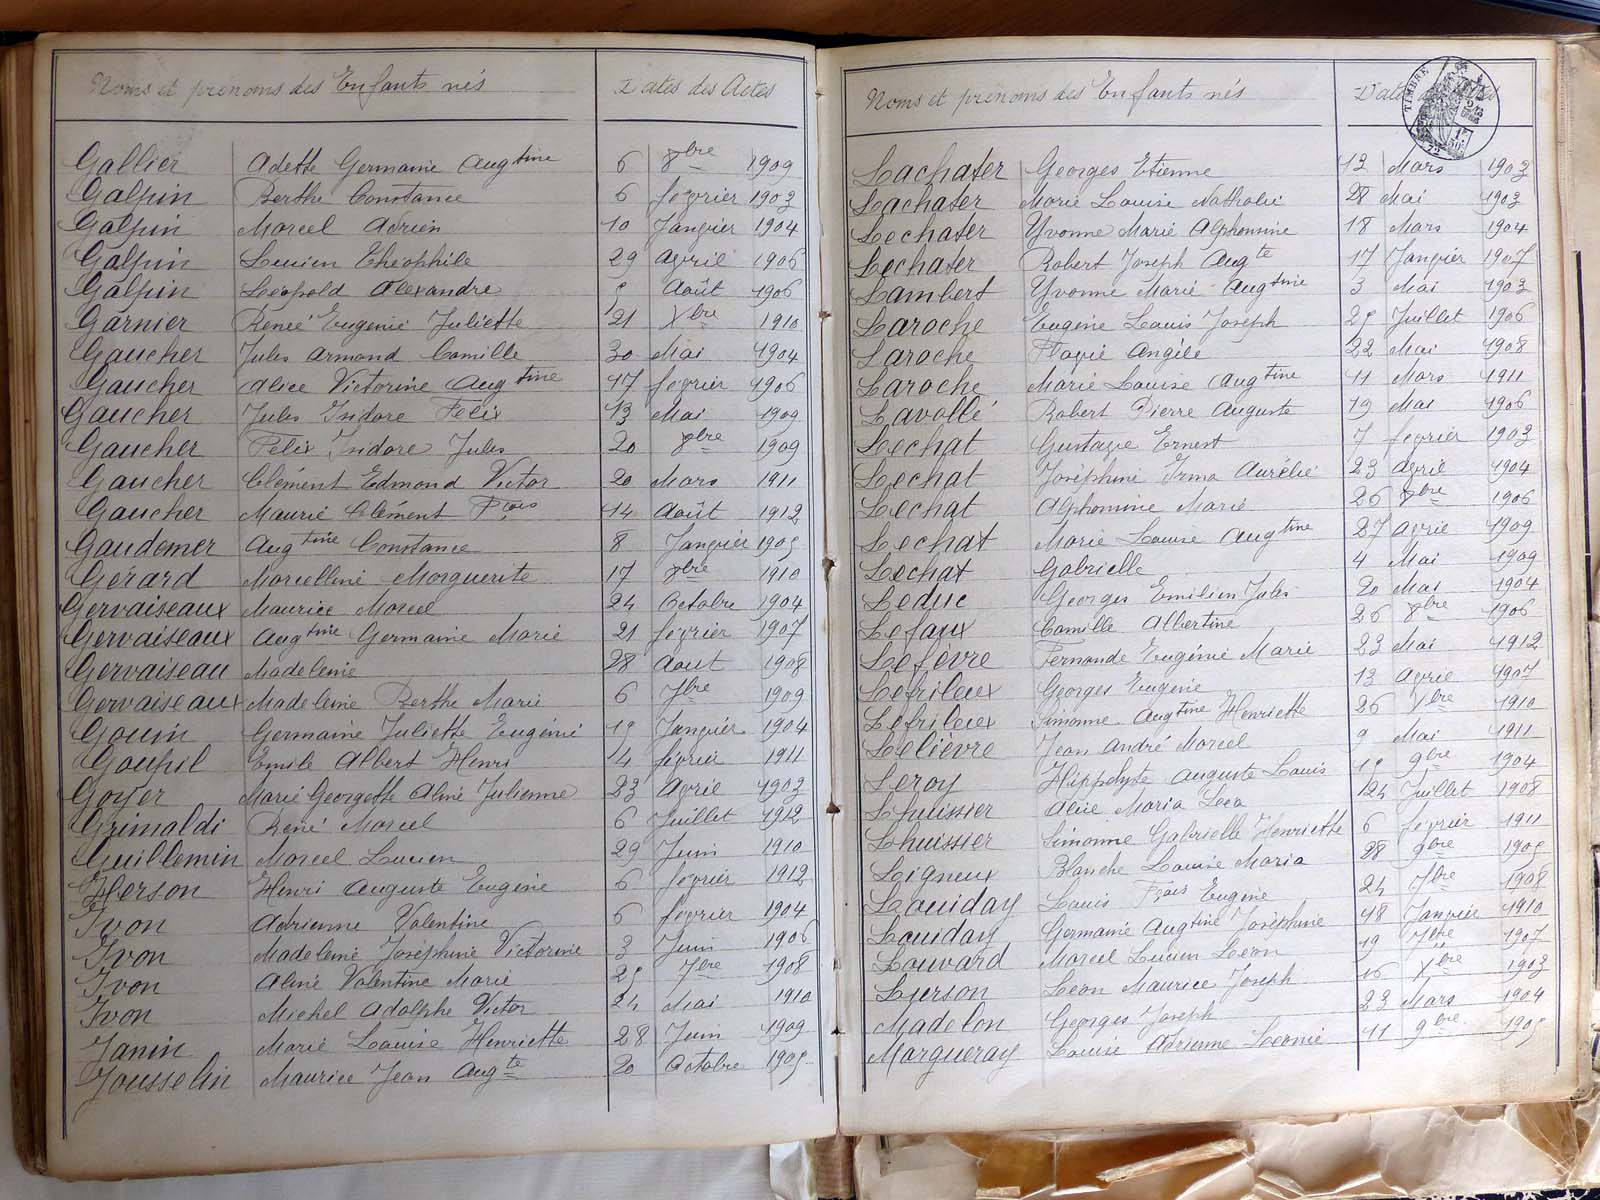 Noms et prénoms des Enfants nés Dates des Actes
Gallier Odette Germaine Augtine 6 8bre 1909
Galpin Berthe Constance 6 février 1903
Galpin Marcel Adrien 10 Janvier 1904
Galpin Lucien Théophile 29 Avril 1906
Galpin Léopold Alexandre 5 Août 1906
Garnier Renée Eugénie Juliette 21 Xbre 1910
Gaucher Jules Armand Camille 30 Mai 1904
Gaucher Alice Victorine Augtine 17 février 1906
Gaucher Jules Isidore Félix 13 Mai 1909
Gaucher Félix Isidore Jules 20 1909
Gaucher Clément Edmond Victor 20 Mars 1911
Gaucher Maurie Clément Fçois 14 Août 1912
Gaudemer Augtine Constance 8 Janvier 1905
Gérard Marcelline Marguerite 17 1910
Gervaiseaux Maurice Marcel 24 Octobre 1904
Gervaiseaux Augtine Germaine Marie 21 février 1907
Gervaiseau Madeleine 28 Aout 1908
Gervaiseaux Madeleine Berthe Marie 6 7bre 1909
Gouin Germaine Juliette Eugénie 15 Janvier 1904
Goupil Emile Albert Henri 14 février 1911
Goyer Marie Georgette Aline Julienne 23 Avril 1903
Grimaldi René Marcel 6 Juillet 1912
Guillemin Marcel Lucien 29 Juin 1910
Herson Henri Auguste Eugène 6 février 1912
Ivon Adrienne Valentine 6 février 1904
Ivon Madeleine Joséphine Victorine 3 Juin 1906
Ivon Aline Valentine Marie 25 7bre 1908
Ivon Michel Adolphe Victor 24 Mai 1910
Janin Marie Louise Henriette 28 Juin 1909
Jousselin Maurice Jean Augte 20 Octobre 1905
Noms et prénoms des Enfants nés
TIMBRE
Lachater Georges Etienne 13 Mars 1903
Lachater Marie Louise Nathalie 28 Mai 1903
Lechater Yvonne Marie Alphonsine 18 Mars 1904
Lechater Robert Joseph Augte 17 Janvier 1907
Lambert Yvonne Marie Augtine 3 Mai 1903
Laroche Eugène Louis Joseph 25 Juillet 1906
Laroche Flavie Angèle 22 Mai 1908
Laroche Marie Louise Augtine 11 Mars 1911
Lavollé Robert Pierre Auguste 19 Mai 1906
Lechat Gustave Ernest 7 février 1903
Lechat Joséphine Irma Aurélie 23 Avril 1904
Lechat Alphonsine Marie 26 1906
Lechat Marie Louise Augtine 27 Avril 1909
Lechat Gabrielle 4 Mai 1909
Leduc Georges Emilien Jules 20 Mai 1904
Lefaux Camille Albertine 26 8bre 1906
Lefèvre Fernande Eugénie Marie 23 Mai 1912
Lefrileux Georges Eugène 13 Avril 1907
Lefrileux Simonne Augtine Henriette 26 Xbre 1910
Lelièvre Jean André Marcel 9 Mai 1911
Leroy Hippolyte Auguste Louis 15 9bre 1904
Lhuissier Alice Maria 24 Juillet 1908
Lhuissier Simonne Gabrielle Henriette 6 février 1911
Ligneux Blanche Louise Maria 28 9bre 1905
Louiday Louis Fçois Eugène 24 7bre 1908
Louiday Germaine Augtine Joséphine 18 Janvier 1910
Louvard Marcel Lucien Léon 19 7bre 1907
Luerson Léon Maurice Joseph 16 Xbre 1903
Madelon Georges Joseph 23 Mars 1904
Margueray Louise Adrienne Léonie 11 9bre 1905